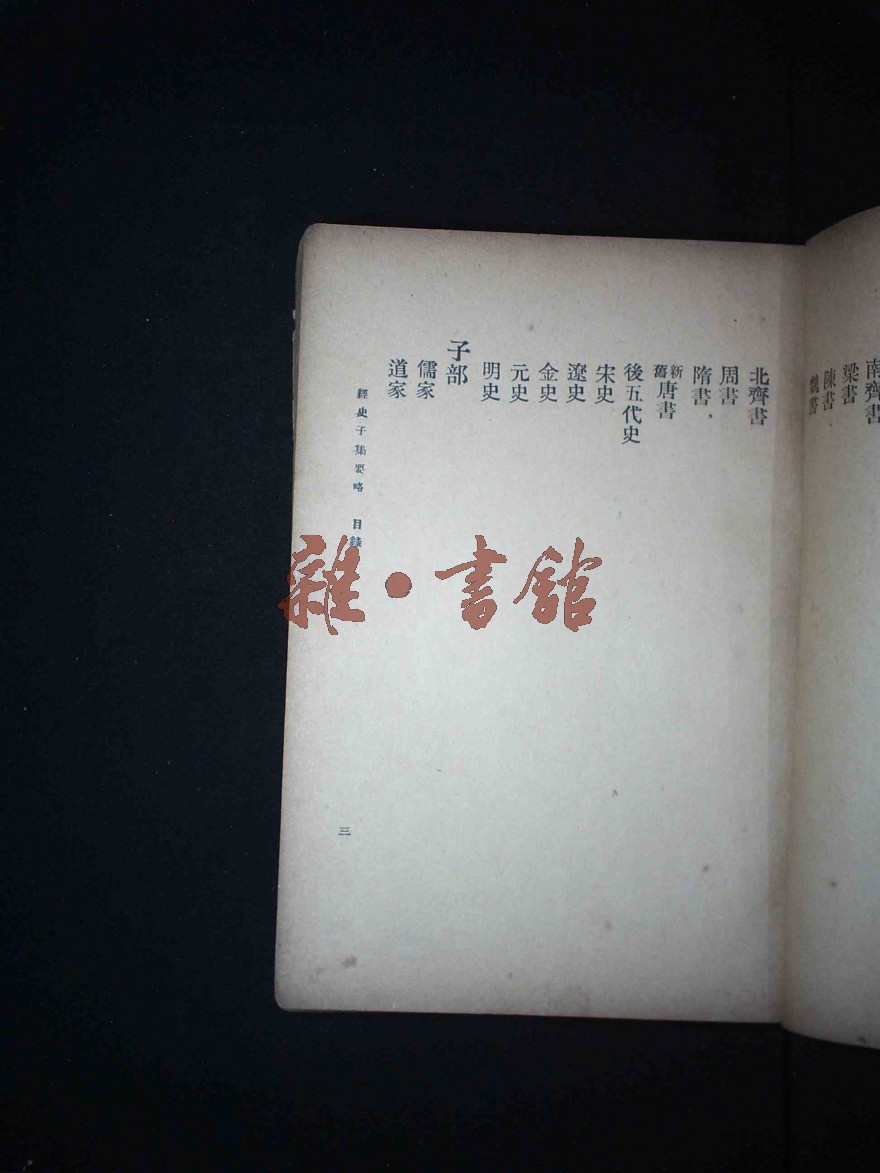 南齊書
梁書
陳書
魏書
北齊書
周書
隋書
新舊唐書
後五代史
宋史
遼史
金史
元史
明史
子部
儒家
道家
經史子集要略 目錄
三
雜·書館